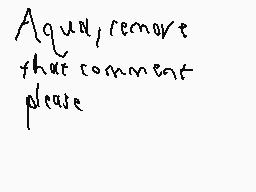 Aqua, remove
that comment
please